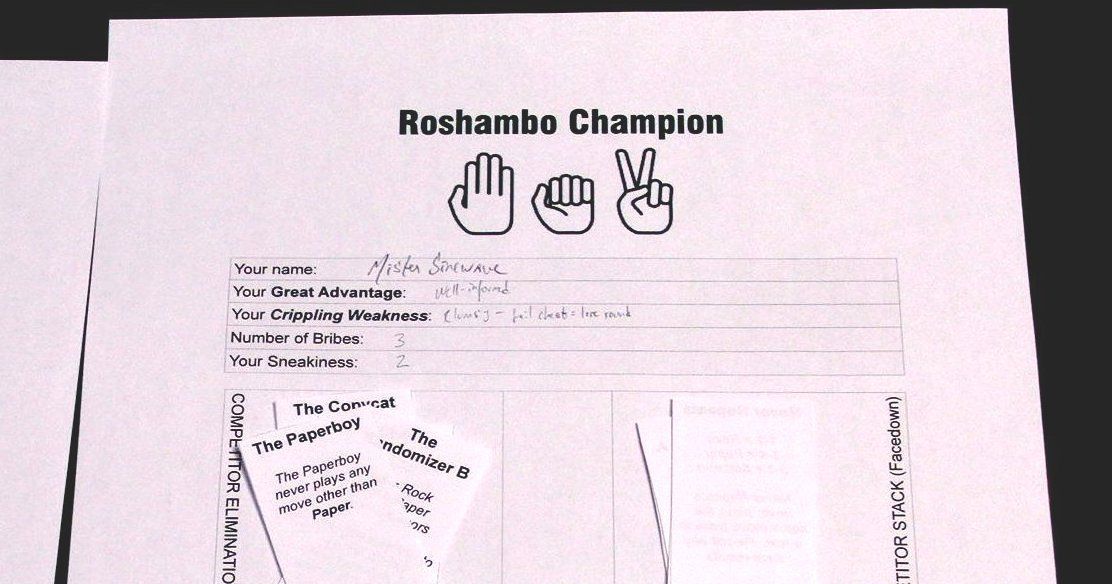 Roshambo Champion
Your name: Mister Sinewave
Your Great Advantage: well-informed
Your Crippling Weakness: Clumsy - fail cheat = lose round
Number of Bribes: 3
Your Sneakiness: 2
COMPETITOR ELIMINATIO
The Copycat
The Paperboy
The Paperboy
never plays any
move other than
Paper.
The
ndomizer B
- Rock
aper
ors
TITOR STACK (Facedown)